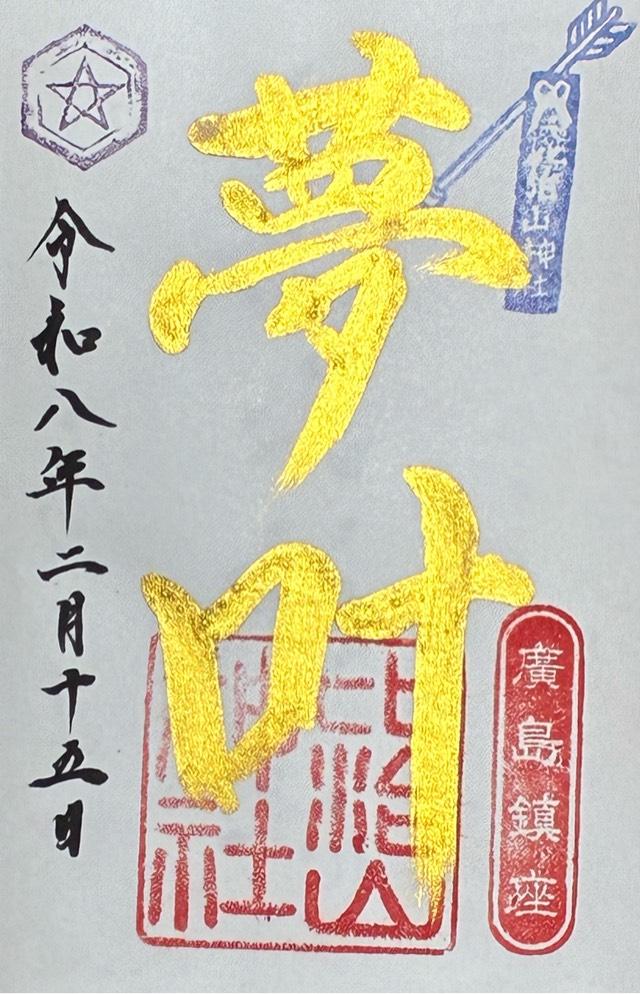 比治山神社
廣島鎮座
夢叶
比治山
神社
令和八年二月十五日